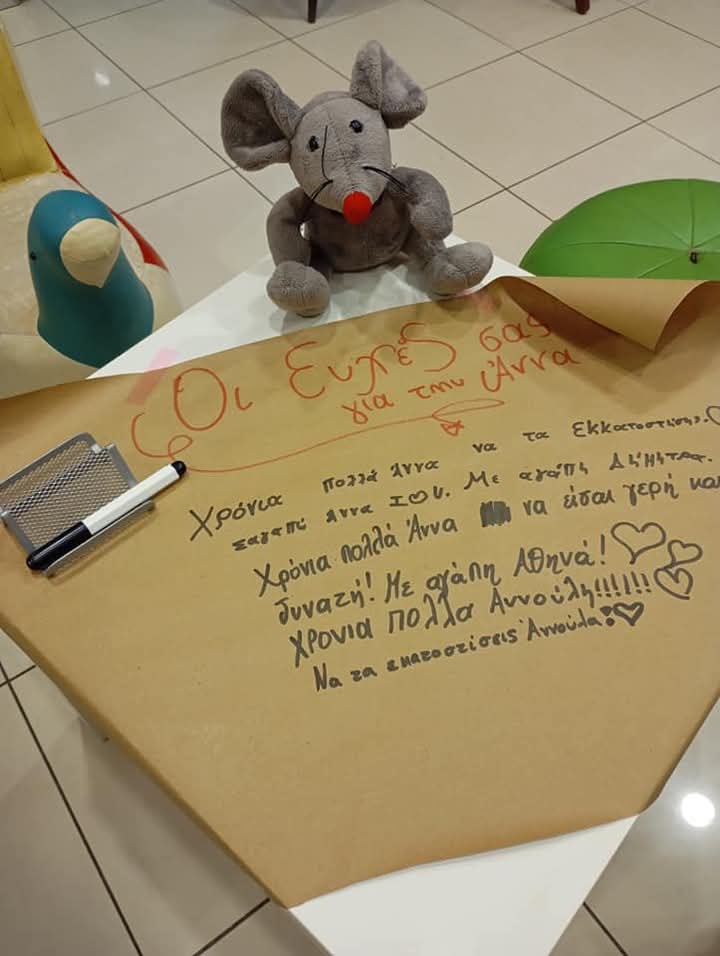 Οι Ευχές σας
για την Άννα
Χρόνια πολλά Άννα να τα Εκκατοστίσης.
σαγαπώ Άννα I ♡ U. Με αγάπη Δήμητρα.
Χρόνια πολλά Άννα να είσαι γερή και
δυνατή! Με αγάπη Αθηνά! ♡♡
Χρονια πολλα Αννούλη!!!!!! ♡
Να τα εκατοστίσεις Άννούλα! ♡